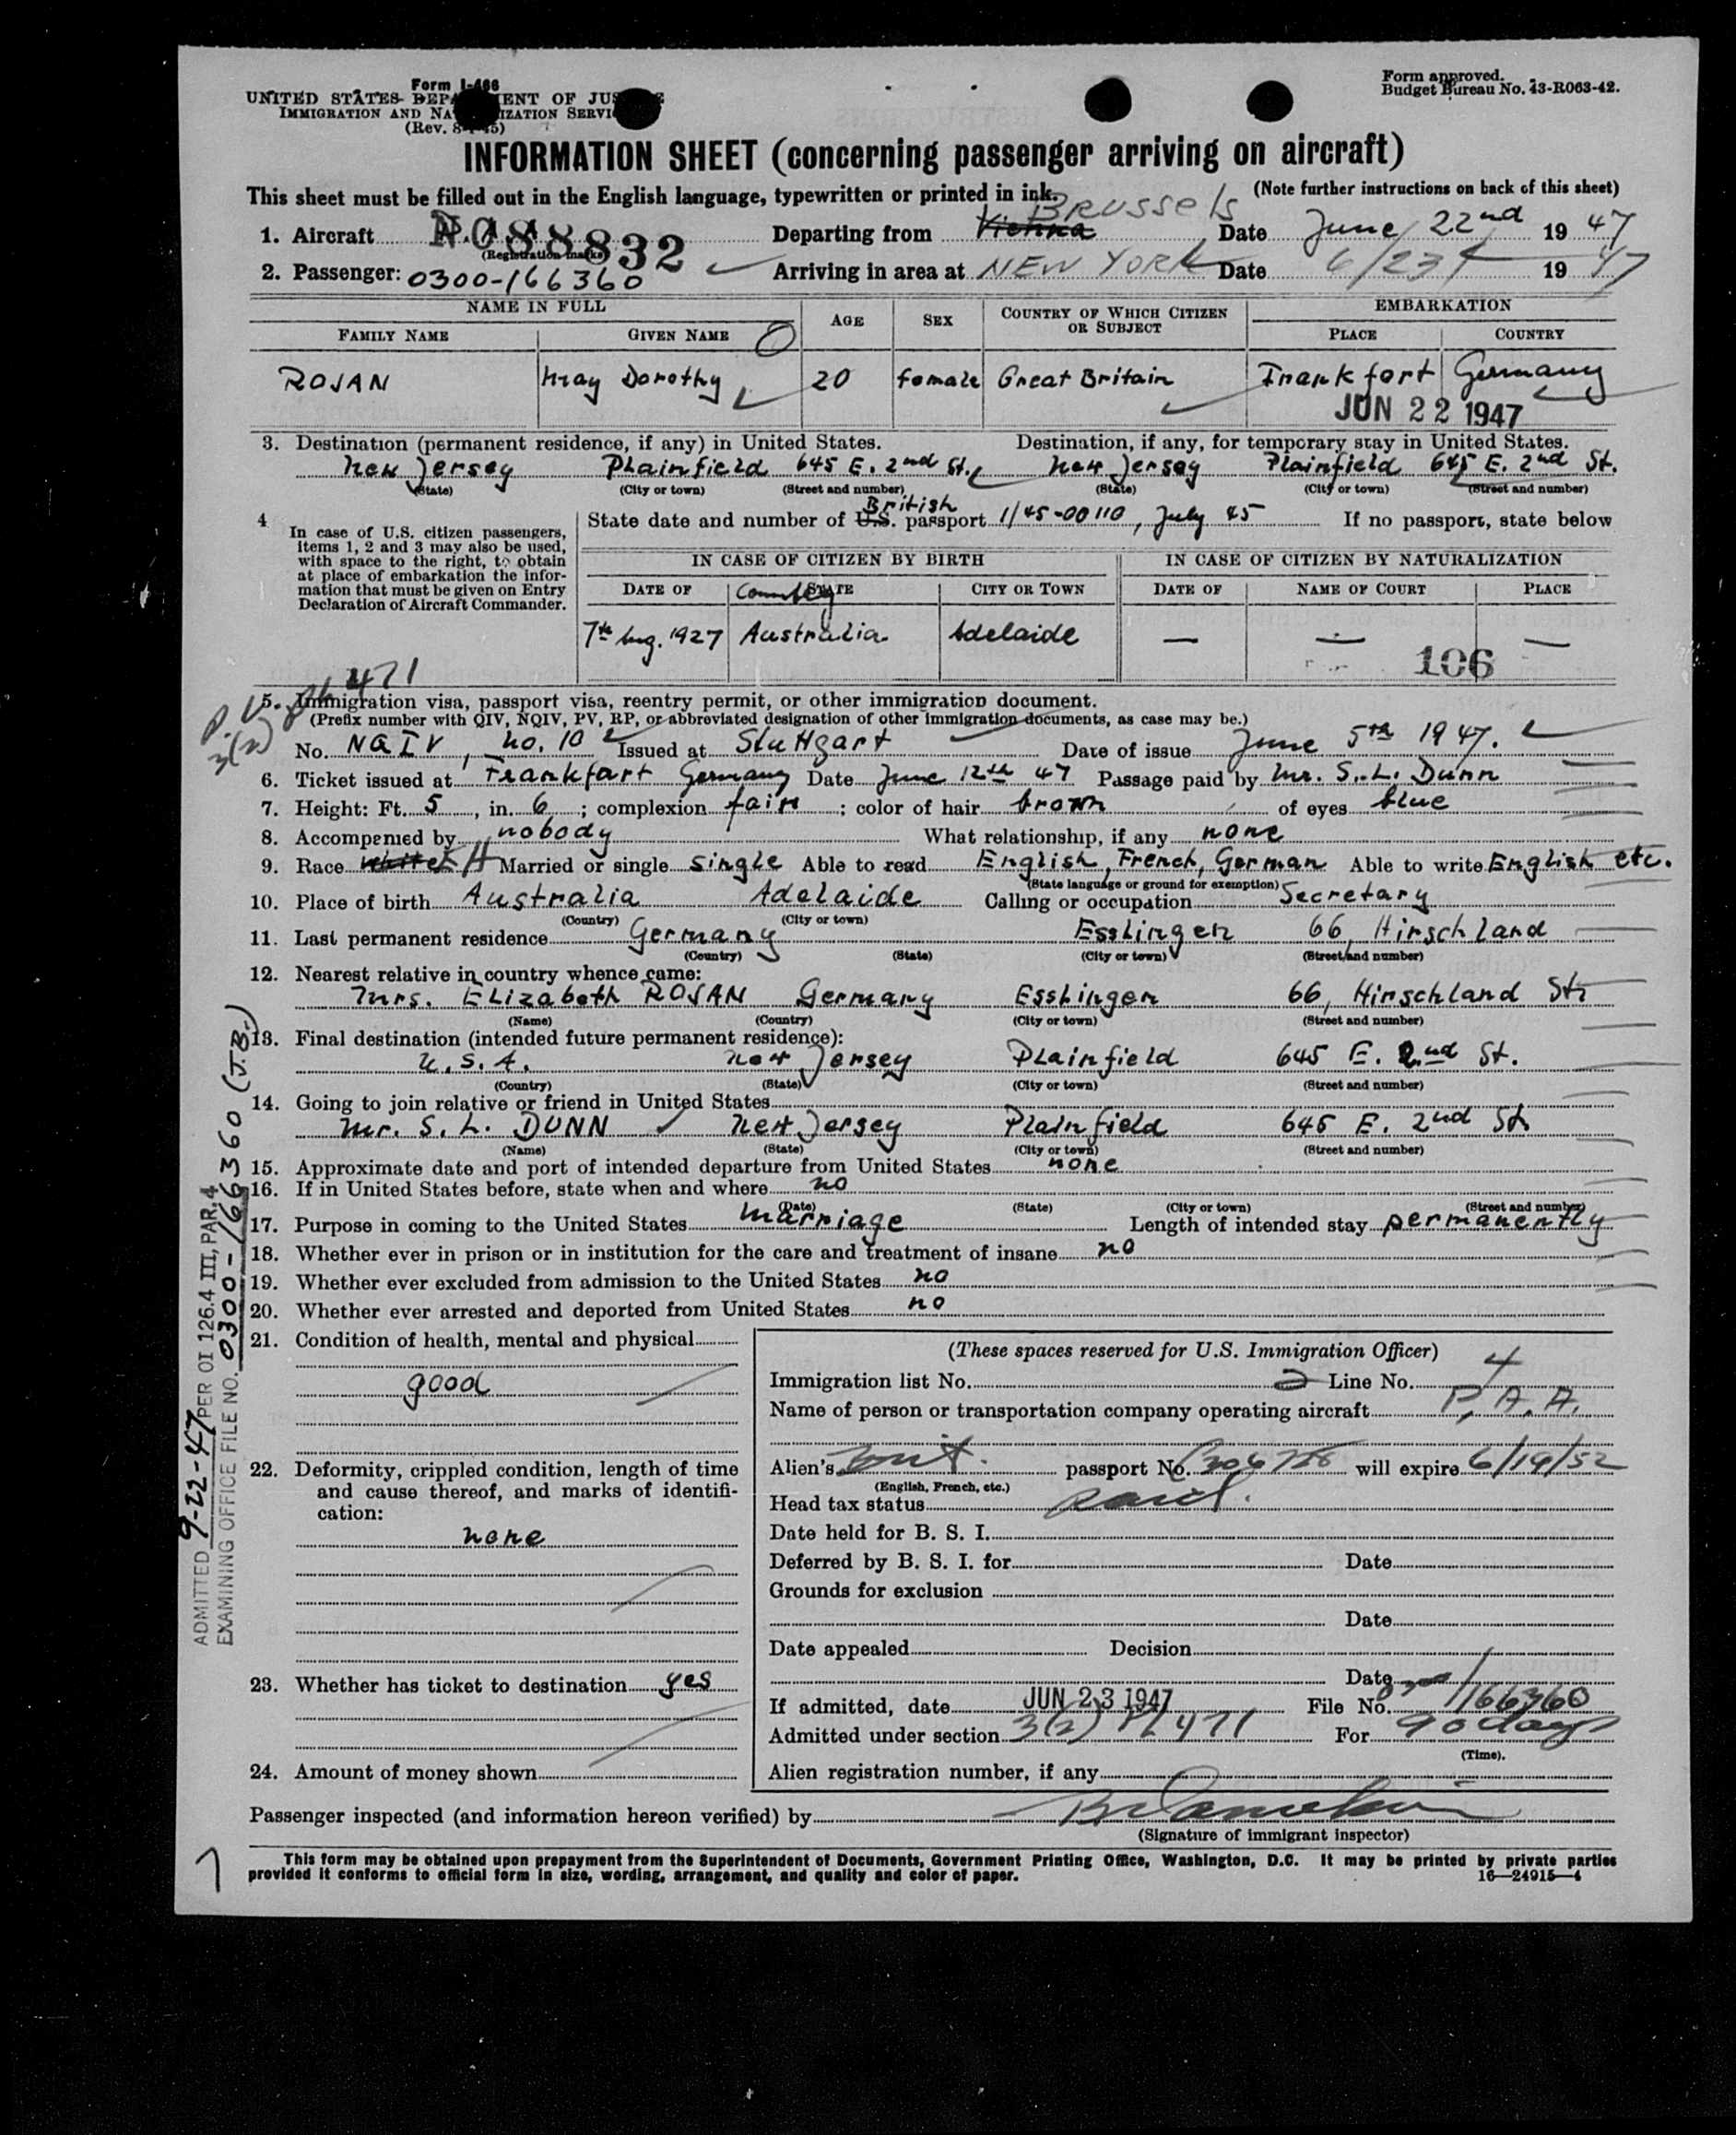 Form I-466
UNITED STATES DEPARTMENT OF JUSTICE
IMMIGRATION AND NATURALIZATION SERVICE
(Rev. 8-1-45)
Form approved.
Budget Bureau No. 43-R063-42.
INFORMATION SHEET (concerning passenger arriving on aircraft)
This sheet must be filled out in the English language, typewritten or printed in ink. (Note further instructions on back of this sheet)
1. Aircraft NC 88832 Departing from Vienna Brussels Date June 22nd 19 47
(Registration marks)
2. Passenger: 0300-166360 Arriving in area at NEW YORK Date 6/23 19 47
NAME IN FULL AGE SEX COUNTRY OF WHICH CITIZEN OR SUBJECT EMBARKATION
FAMILY NAME GIVEN NAME PLACE COUNTRY
ROJAN May Dorothy 20 female Great Britain Frankfort Germany
JUN 22 1947
3. Destination (permanent residence, if any) in United States. Destination, if any, for temporary stay in United States.
New Jersey Plainfield 645 E. 2nd St. New Jersey Plainfield 645 E. 2nd St.
(State) (City or town) (Street and number) (State) (City or town) (Street and number)
4 In case of U.S. citizen passengers, items 1, 2 and 3 may also be used, with space to the right, to obtain at place of embarkation the information that must be given on Entry Declaration of Aircraft Commander.
British
State date and number of U.S. passport 1/45-00110, July 45 If no passport, state below
IN CASE OF CITIZEN BY BIRTH IN CASE OF CITIZEN BY NATURALIZATION
DATE OF Country STATE CITY OR TOWN DATE OF NAME OF COURT PLACE
7th Aug. 1927 Australia Adelaide — — —
106
P.V. 3(2) PL 471
5. Immigration visa, passport visa, reentry permit, or other immigration document.
(Prefix number with QIV, NQIV, PV, RP, or abbreviated designation of other immigration documents, as case may be.)
No. NQIV, no. 10 Issued at Stuttgart Date of issue June 5th 1947.
6. Ticket issued at Frankfart Germany Date June 12th 47 Passage paid by Mr. S. L. Dunn
7. Height: Ft. 5, in. 6; complexion fair; color of hair brown of eyes blue
8. Accompanied by nobody What relationship, if any none
9. Race white H Married or single single Able to read English, French, German Able to write English etc.
(State language or ground for exemption)
10. Place of birth Australia Adelaide Calling or occupation Secretary
(Country) (City or town)
11. Last permanent residence Germany Esslingen 66, Hirschland
(Country) (State) (City or town) (Street and number)
12. Nearest relative in country whence came:
Mrs. Elizabeth ROJAN Germany Esslingen 66, Hirschland Str
(Name) (Country) (City or town) (Street and number)
13. Final destination (intended future permanent residence):
U.S.A. New Jersey Plainfield 645 E. 2nd St.
(Country) (State) (City or town) (Street and number)
14. Going to join relative or friend in United States
Mr. S. L. DUNN New Jersey Plainfield 645 E. 2nd St.
(Name) (State) (City or town) (Street and number)
15. Approximate date and port of intended departure from United States none
16. If in United States before, state when and where no
(Date) (State) (City or town) (Street and number)
17. Purpose in coming to the United States marriage Length of intended stay permanently
18. Whether ever in prison or in institution for the care and treatment of insane no
19. Whether ever excluded from admission to the United States no
20. Whether ever arrested and deported from United States no
21. Condition of health, mental and physical
good
22. Deformity, crippled condition, length of time and cause thereof, and marks of identification:
none
23. Whether has ticket to destination yes
24. Amount of money shown
(These spaces reserved for U.S. Immigration Officer)
Immigration list No. 2 Line No. 4
Name of person or transportation company operating aircraft P.A.A.
Alien's Brit. passport No. will expire 6/19/52
(English, French, etc.)
Head tax status Paid.
Date held for B. S. I.
Deferred by B. S. I. for Date
Grounds for exclusion
Date
Date appealed Decision
Date
If admitted, date JUN 23 1947 File No. 0300/166360
Admitted under section 3(2) PL 471 For 90 days
(Time).
Alien registration number, if any
Passenger inspected (and information hereon verified) by
(Signature of immigrant inspector)
This form may be obtained upon prepayment from the Superintendent of Documents, Government Printing Office, Washington, D.C. It may be printed by private parties
provided it conforms to official form in size, wording, arrangement, and quality and color of paper. 16—24915—4
7
ADMITTED 9-22-47 PER OI 126.4 III, PAR. 4
EXAMINING OFFICE FILE NO. 0300-166360 (J.B.)